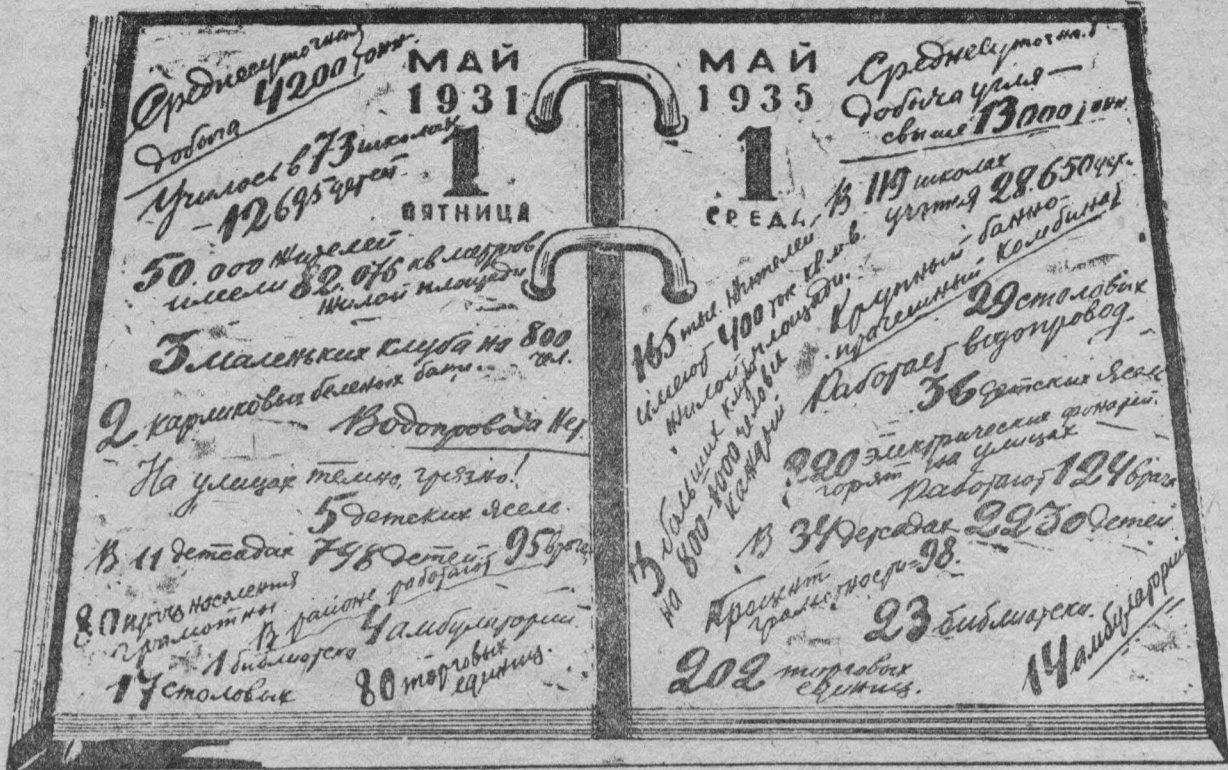 Среднесуточная
добыча 4200 тонн.
МАЙ
1931
1
ПЯТНИЦА
Училось в 73 школах
— 12695 детей.
50.000 жителей
имели 82.075 кв метров
жилой площади
3 маленьких клуба на 800
чел.
2 карликовых бани..
Водопровода нет
На улицах темно, грязно!
5 детских ясель.
В 11 детсадах 798 детей
95 врачей
80 проц населения
грамотны
В районе работают
1 библиотека
4 амбулатории
17 столовых
80 торговых
единиц.
МАЙ
1935
1
СРЕДА
Среднесуточная
добыча угля —
свыше 13000 тонн.
В 119 школах
учится 28.650 дет.
165 тыс. жителей
имеют 400 тыс. кв. м.
жилой площади.
Крупный банно-
прачешный комбинат
3 больших клуба
на 800-1000 человек
каждый
29 столовых
Работает водопровод.
36 детских ясель
220 электрических фонарей
горят на улицах
Работают 124 врача
В 34 детсадах 2230 детей
Процент
грамотности — 98.
23 библиотеки.
202 торговых
единиц.
14 амбулаторий